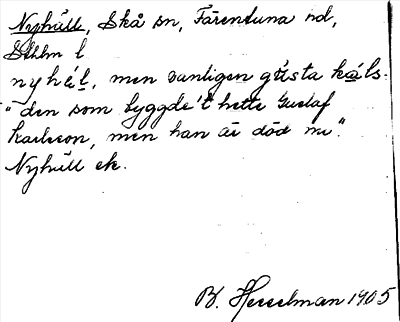 Nyhäll, Skå sn, Färentuna hd,
Sthlm l
nyhä́l, men vanligen gu̇sta kȧls.
"den som byggde't hette Gustaf
Karlsson, men han är död nu".
Nyhäll ek.
B. Hesselman 1905